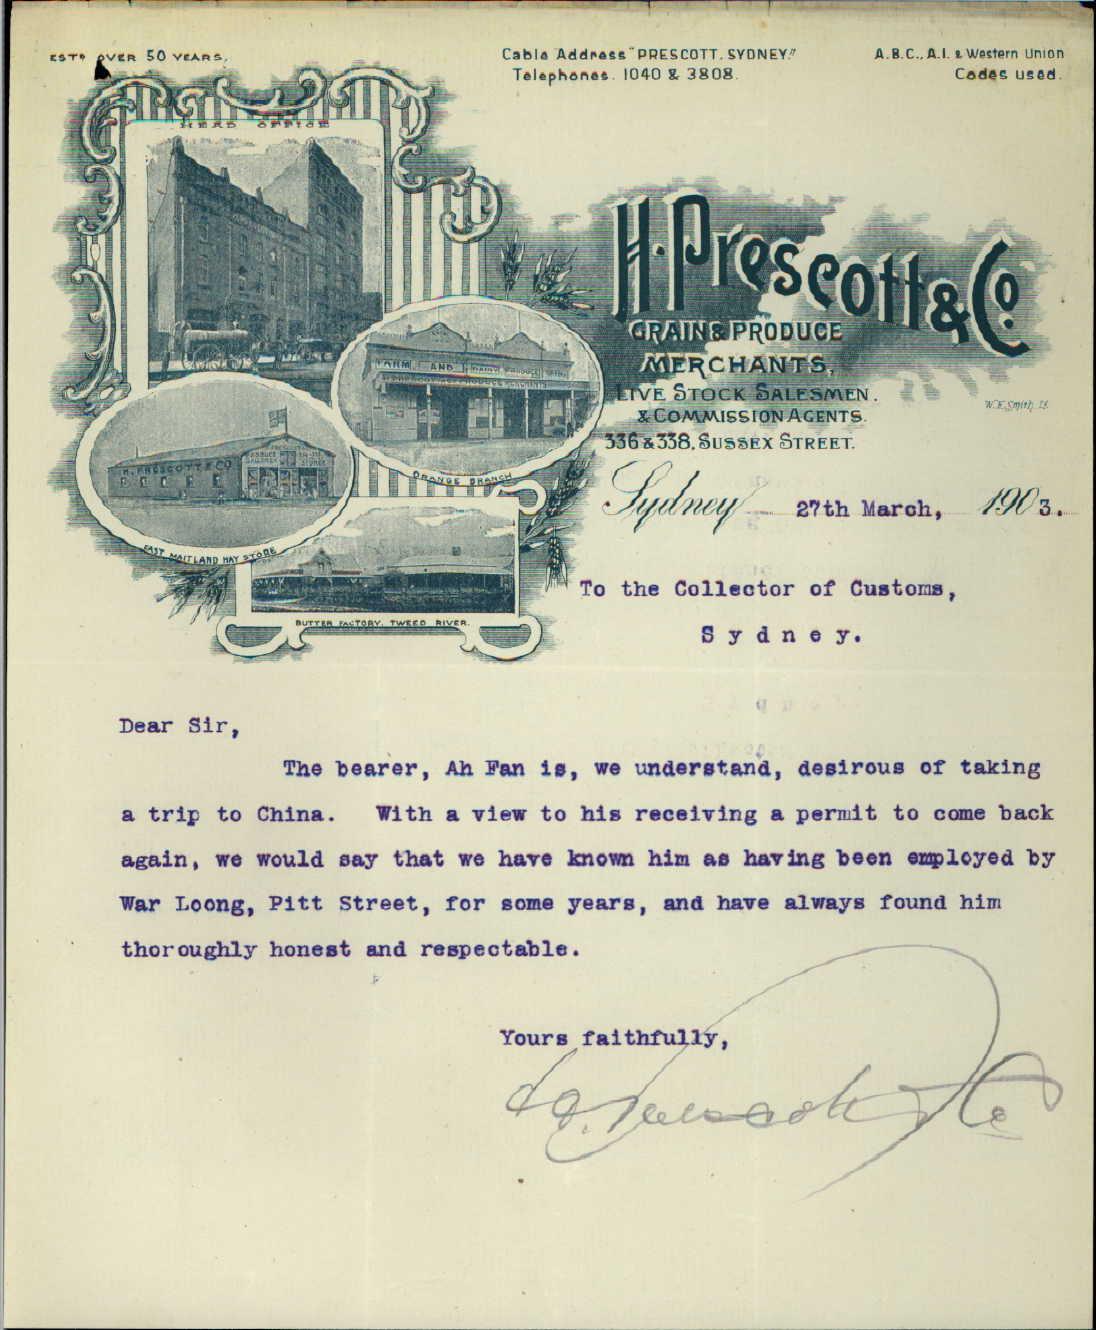 ESTD OVER 50 YEARS.
Cable Address "PRESCOTT. SYDNEY."
Telephones. 1040 & 3808.
A.B.C., A.I. & Western Union
Codes used.
HEAD OFFICE
H. Prescott & Co.
GRAIN & PRODUCE
MERCHANTS,
LIVE STOCK SALESMEN.
& COMMISSION AGENTS.
336 & 338, SUSSEX STREET.
W.E. Smith
FARM AND DAIRY PRODUCE
ORANGE BRANCH
H. PRESCOTT & CO
EAST MAITLAND HAY STORE
BUTTER FACTORY. TWEED RIVER.
Sydney 27th March, 1903.
To the Collector of Customs,
Sydney.
Dear Sir,
The bearer, Ah Fan is, we understand, desirous of taking
a trip to China. With a view to his receiving a permit to come back
again, we would say that we have known him as having been employed by
War Loong, Pitt Street, for some years, and have always found him
thoroughly honest and respectable.
Yours faithfully,
H. Prescott & Co